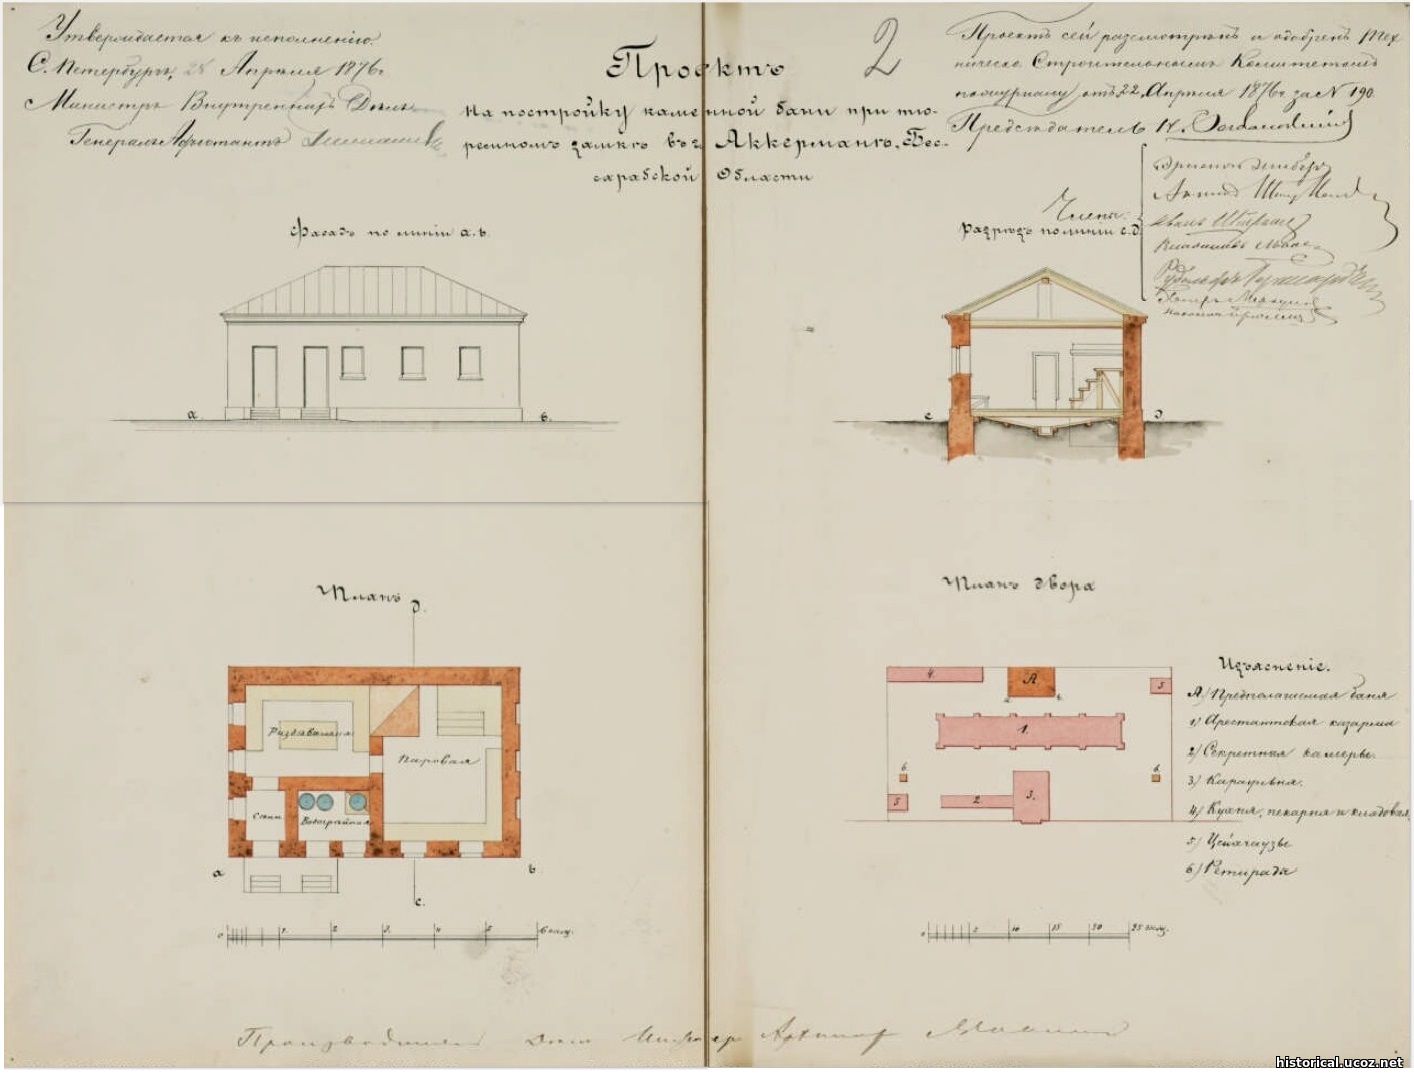 Утверждается къ исполненію.
С. Петербургъ, 28 Апрѣля 1876 г.
Министръ Внутреннихъ Дѣлъ
Генералъ Адъютантъ
Проектъ
на постройку каменной бани при тю-
ремномъ замкѣ въ г. Аккерманѣ, Бес-
сарабской Области
2
Проектъ сей разсмотрѣнъ и одобренъ Тех
ническо Строительнымъ Комитетомъ
по журналу отъ 22 Апрѣля 1876 г. за № 190.
Предсѣдатель
Члены:
Фасадъ по линіи а.в.
а.
в.
Разрѣзъ по линіи с.д.
с
д.
Планъ
д.
Раздѣвальня
Паровая
Сѣни
Водогрѣйная
а
в
с.
0 1. 2 3. 4 5 6 саж.
Планъ двора
4.
А
5
1.
6.
6.
5
2.
3.
Изъясненіе.
А) Предполагаемая баня
1) Арестантская казарма
2) Секретныя камеры.
3) Караульня.
4) Кухня, пекарня и кладовая
5) Цейхгаузы
6) Ретирады
0 5 10 15 20 25 саж.
Производитель Дѣлъ Инженеръ Архитект
historical.ucoz.net